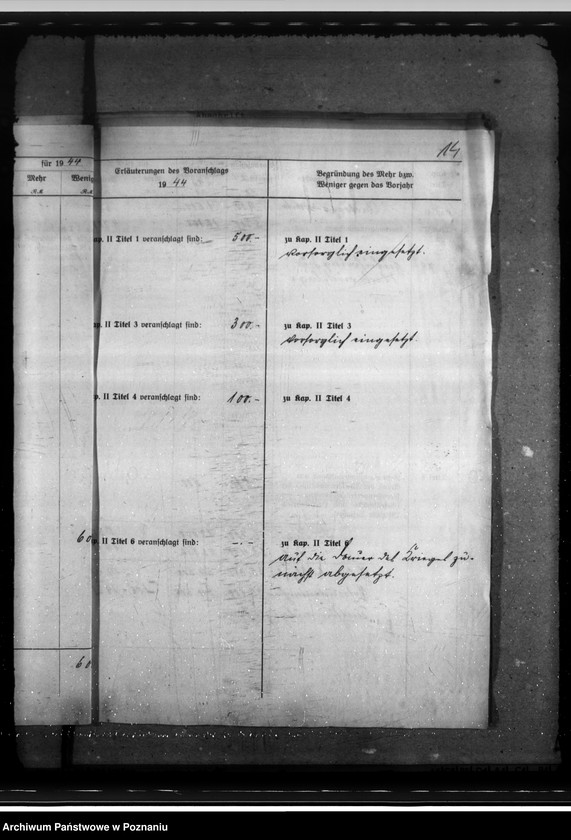 14
für 1944
Mehr
Wenig
RM
RM
Erläuterungen des Voranschlags
1944
Begründung des Mehr bzw.
Weniger gegen das Vorjahr
p. II Titel 1 veranschlagt sind: 500.-
zu Kap. II Titel 1
vorsorglich eingesetzt.
p. II Titel 3 veranschlagt sind: 300.-
zu Kap. II Titel 3
vorsorglich eingesetzt.
p. II Titel 4 veranschlagt sind: 100.-
zu Kap. II Titel 4
60
p. II Titel 6 veranschlagt sind: -.-
zu Kap. II Titel 6
auf die Dauer des Krieges zu-
nächst abgesetzt.
60
Archiwum Państwowe w Poznaniu